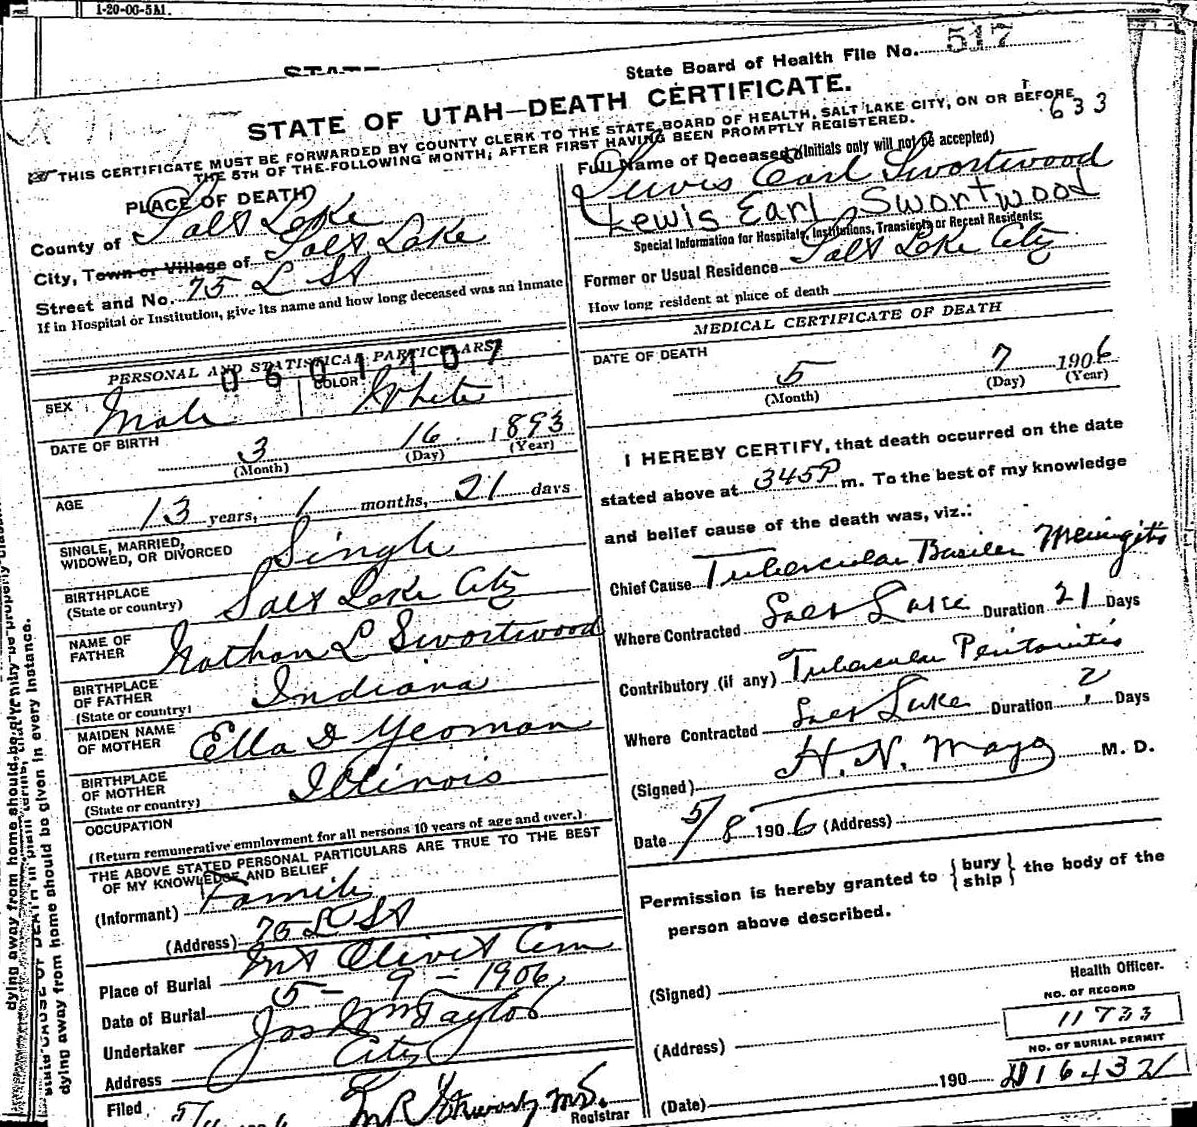 1-20-06-5M.
STATE
State Board of Health File No. 517
STATE OF UTAH—DEATH CERTIFICATE.
633
THIS CERTIFICATE MUST BE FORWARDED BY COUNTY CLERK TO THE STATE BOARD OF HEALTH, SALT LAKE CITY, ON OR BEFORE
THE 5TH OF THE FOLLOWING MONTH, AFTER FIRST HAVING BEEN PROMPTLY REGISTERED.
PLACE OF DEATH
County of Salt Lake
City, Town or Village of Salt Lake
Street and No. 75 L St
If in Hospital or Institution, give its name and how long deceased was an Inmate
PERSONAL AND STATISTICAL PARTICULARS
0601407
SEX Male COLOR White
DATE OF BIRTH 3 16 1893
(Month) (Day) (Year)
AGE 13 years, 1 months, 21 days
SINGLE, MARRIED,
WIDOWED, OR DIVORCED Single
BIRTHPLACE
(State or country) Salt Lake City
NAME OF
FATHER Nathan L Swortwood
BIRTHPLACE
OF FATHER
(State or country) Indiana
MAIDEN NAME
OF MOTHER Ella D Yeoman
BIRTHPLACE
OF MOTHER
(State or country) Illinois
OCCUPATION
(Return remunerative employment for all persons 10 years of age and over.)
THE ABOVE STATED PERSONAL PARTICULARS ARE TRUE TO THE BEST
OF MY KNOWLEDGE AND BELIEF
(Informant) Family
(Address) 75 L St
Place of Burial Mt Olivet Cem
Date of Burial 5 - 9 - 1906
Undertaker Jos Wm Taylor
Address City
Filed 5/
M.D.
Registrar
Full Name of Deceased (Initials only will not be accepted)
Lewis Earl Swortwood
Lewis Earl Swortwood
Special Information for Hospitals, Institutions, Transients or Recent Residents:
Former or Usual Residence Salt Lake City
How long resident at place of death
MEDICAL CERTIFICATE OF DEATH
DATE OF DEATH
5 7 1906
(Month) (Day) (Year)
I HEREBY CERTIFY, that death occurred on the date
stated above at 345 P m. To the best of my knowledge
and belief cause of the death was, viz.:
Chief Cause Tubercular Basilar Meningitis
Where Contracted Salt Lake Duration 21 Days
Contributory (if any) Tubercular Peritonitis
Where Contracted Salt Lake Duration ? Days
(Signed) H. N. Mayo M. D.
Date 5/8 1906 (Address)
Permission is hereby granted to {bury ship} the body of the
person above described.
(Signed)
Health Officer.
NO. OF RECORD
11733
(Address)
NO. OF BURIAL PERMIT
(Date) 190
dying away from home should be given in every instance.